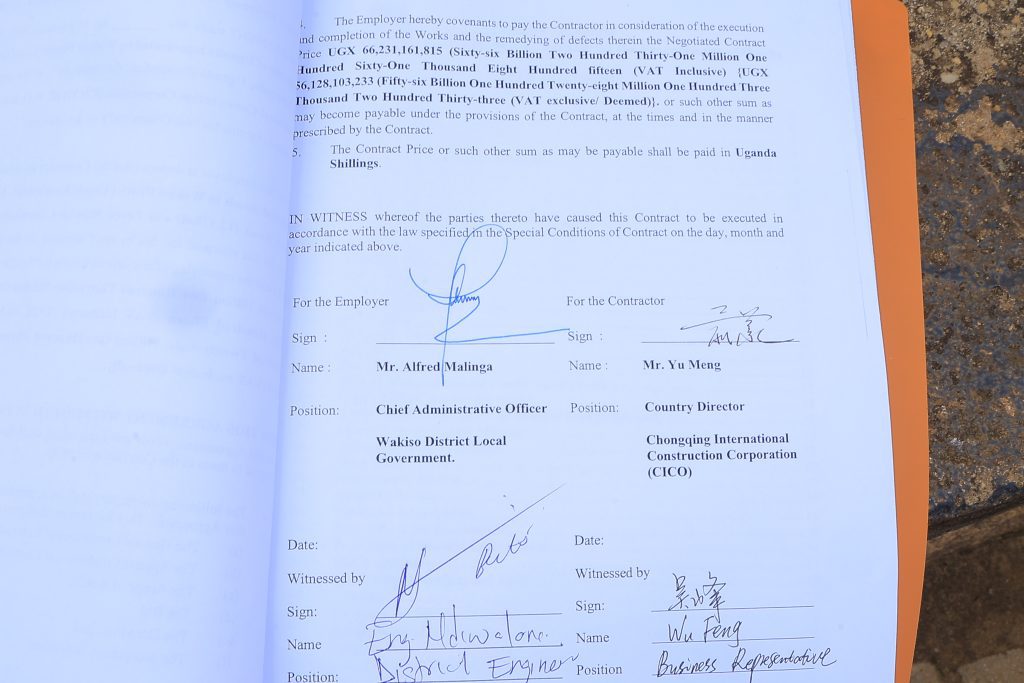 4. The Employer hereby covenants to pay the Contractor in consideration of the execution
and completion of the Works and the remedying of defects therein the Negotiated Contract
Price UGX 66,231,161,815 (Sixty-six Billion Two Hundred Thirty-One Million One
Hundred Sixty-One Thousand Eight Hundred fifteen (VAT Inclusive) {UGX
56,128,103,233 (Fifty-six Billion One Hundred Twenty-eight Million One Hundred Three
Thousand Two Hundred Thirty-three (VAT exclusive/ Deemed)}. or such other sum as
may become payable under the provisions of the Contract, at the times and in the manner
prescribed by the Contract.
5. The Contract Price or such other sum as may be payable shall be paid in Uganda
Shillings.
IN WITNESS whereof the parties thereto have caused this Contract to be executed in
accordance with the law specified in the Special Conditions of Contract on the day, month and
year indicated above.
For the Employer For the Contractor
Sign : Sign :
Name : Mr. Alfred Malinga Name : Mr. Yu Meng
Position: Chief Administrative Officer Position: Country Director
Wakiso District Local Chongqing International
Government. Construction Corporation
(CICO)
Date: Date:
Witnessed by Witnessed by
Sign: Sign:
Name Eng. Name Wu Feng
Position: District Position Business Representative